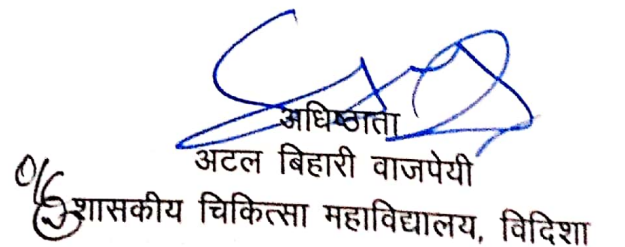 अधिष्ठाता
अटल बिहारी वाजपेयी
शासकीय चिकित्सा महाविद्यालय, विदिशा